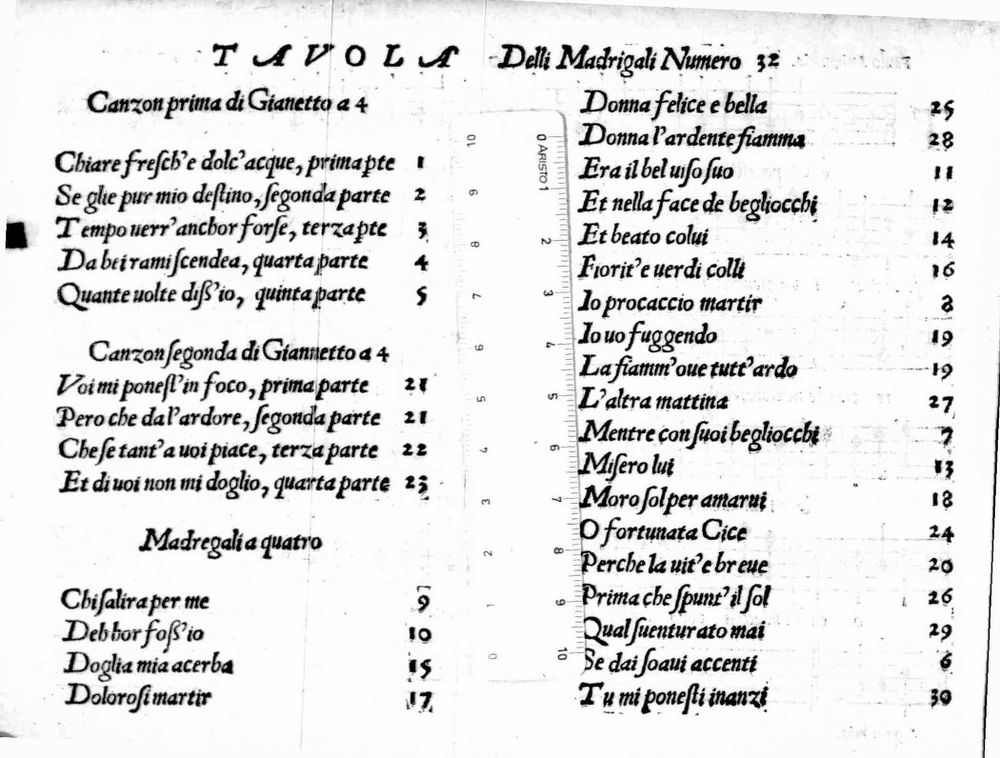 TAVOLA Delli Madrigali Numero 32
Canzon prima di Gianetto a 4
Chiare fresch'e dolc'acque, prima pte 1
Se glie pur mio destino, segonda parte 2
Tempo uerr'anchor forse, terza pte 3
Da bei rami scendea, quarta parte 4
Quante uolte diss'io, quinta parte 5
Canzon segonda di Giannetto a 4
Voi mi ponest'in foco, prima parte 21
Pero che da l'ardore, segonda parte 21
Che se tant'a uoi piace, terza parte 22
Et di uoi non mi doglio, quarta parte 23
Madregali a quatro
Chi salira per me 9
Deh hor foss'io 10
Doglia mia acerba 15
Dolorosi martir 17
Donna felice e bella 25
Donna l'ardente fiamma 28
Era il bel uiso suo 11
Et nella face de begliocchi 12
Et beato colui 14
Fiorit'e uerdi colli 16
Io procaccio martir 8
Io uo fuggendo 19
La fiamm'oue tutt'ardo 19
L'altra mattina 27
Mentre con suoi begliocchi 7
Misero lui 13
Moro sol per amarui 18
O fortunata Cice 24
Perche la uit'e breue 20
Prima che spunt'il sol 26
Qual suenturato mai 29
Se dai soaui accenti 6
Tu mi ponesti inanzi 30
0 ARISTO 1
2
3
4
5
6
7
8
9
10
10
9
8
7
6
5
4
3
2
1
0